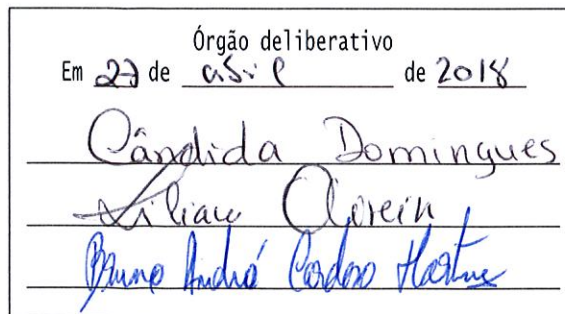 Órgão deliberativo
Em 27 de abril de 2018
Cândida Domingues
Liliana Oliveira
Bruno André Cardoso Martins